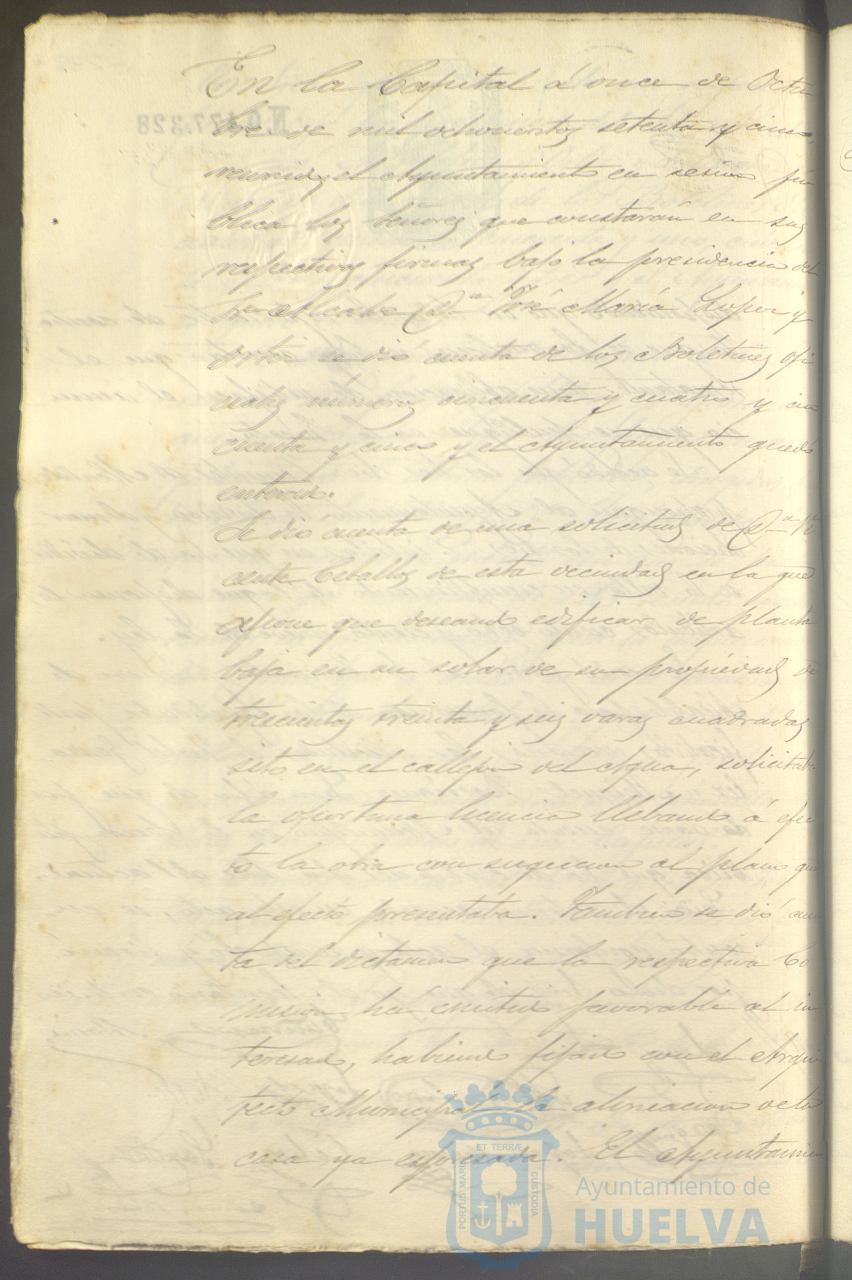 En la Capital á once de Octu
bre de mil ochocientos setenta y cinco,
reunido el Ayuntamiento en sesion pú
blica los Señores que constarán en sus
respectivas firmas bajo la presidencia del
Sr. Alcalde Dn. José María Lopez y
se dió cuenta de los Boletines ofi
ciales números cincuenta y cuatro y cin
cuenta y cinco y el Ayuntamiento quedó
enterado.
Se dió cuenta de una solicitud de Dn. Vi
cente Ceballos de esta vecindad en la que
espone que deseando edificar de planta
baja en un solar de su propiedad de
trescientas treinta y seis varas cuadradas
sito en el callejon del Agua, solicitaba
la oportuna licencia llebando á efec
to la obra con sugecion al plano que
al efecto presentaba. Tambien se dió cuen
ta del dictamen que la respectiva Co
mision ha emitido favorable al in
teresado, habiendo fijado con el Arqui
tecto Municipal la alineacion de la
casa ya espresada. El Ayuntamien
Nº 0.477.328
PORTUS MARIS ET TERRÆ CUSTODIA
Ayuntamiento de
HUELVA